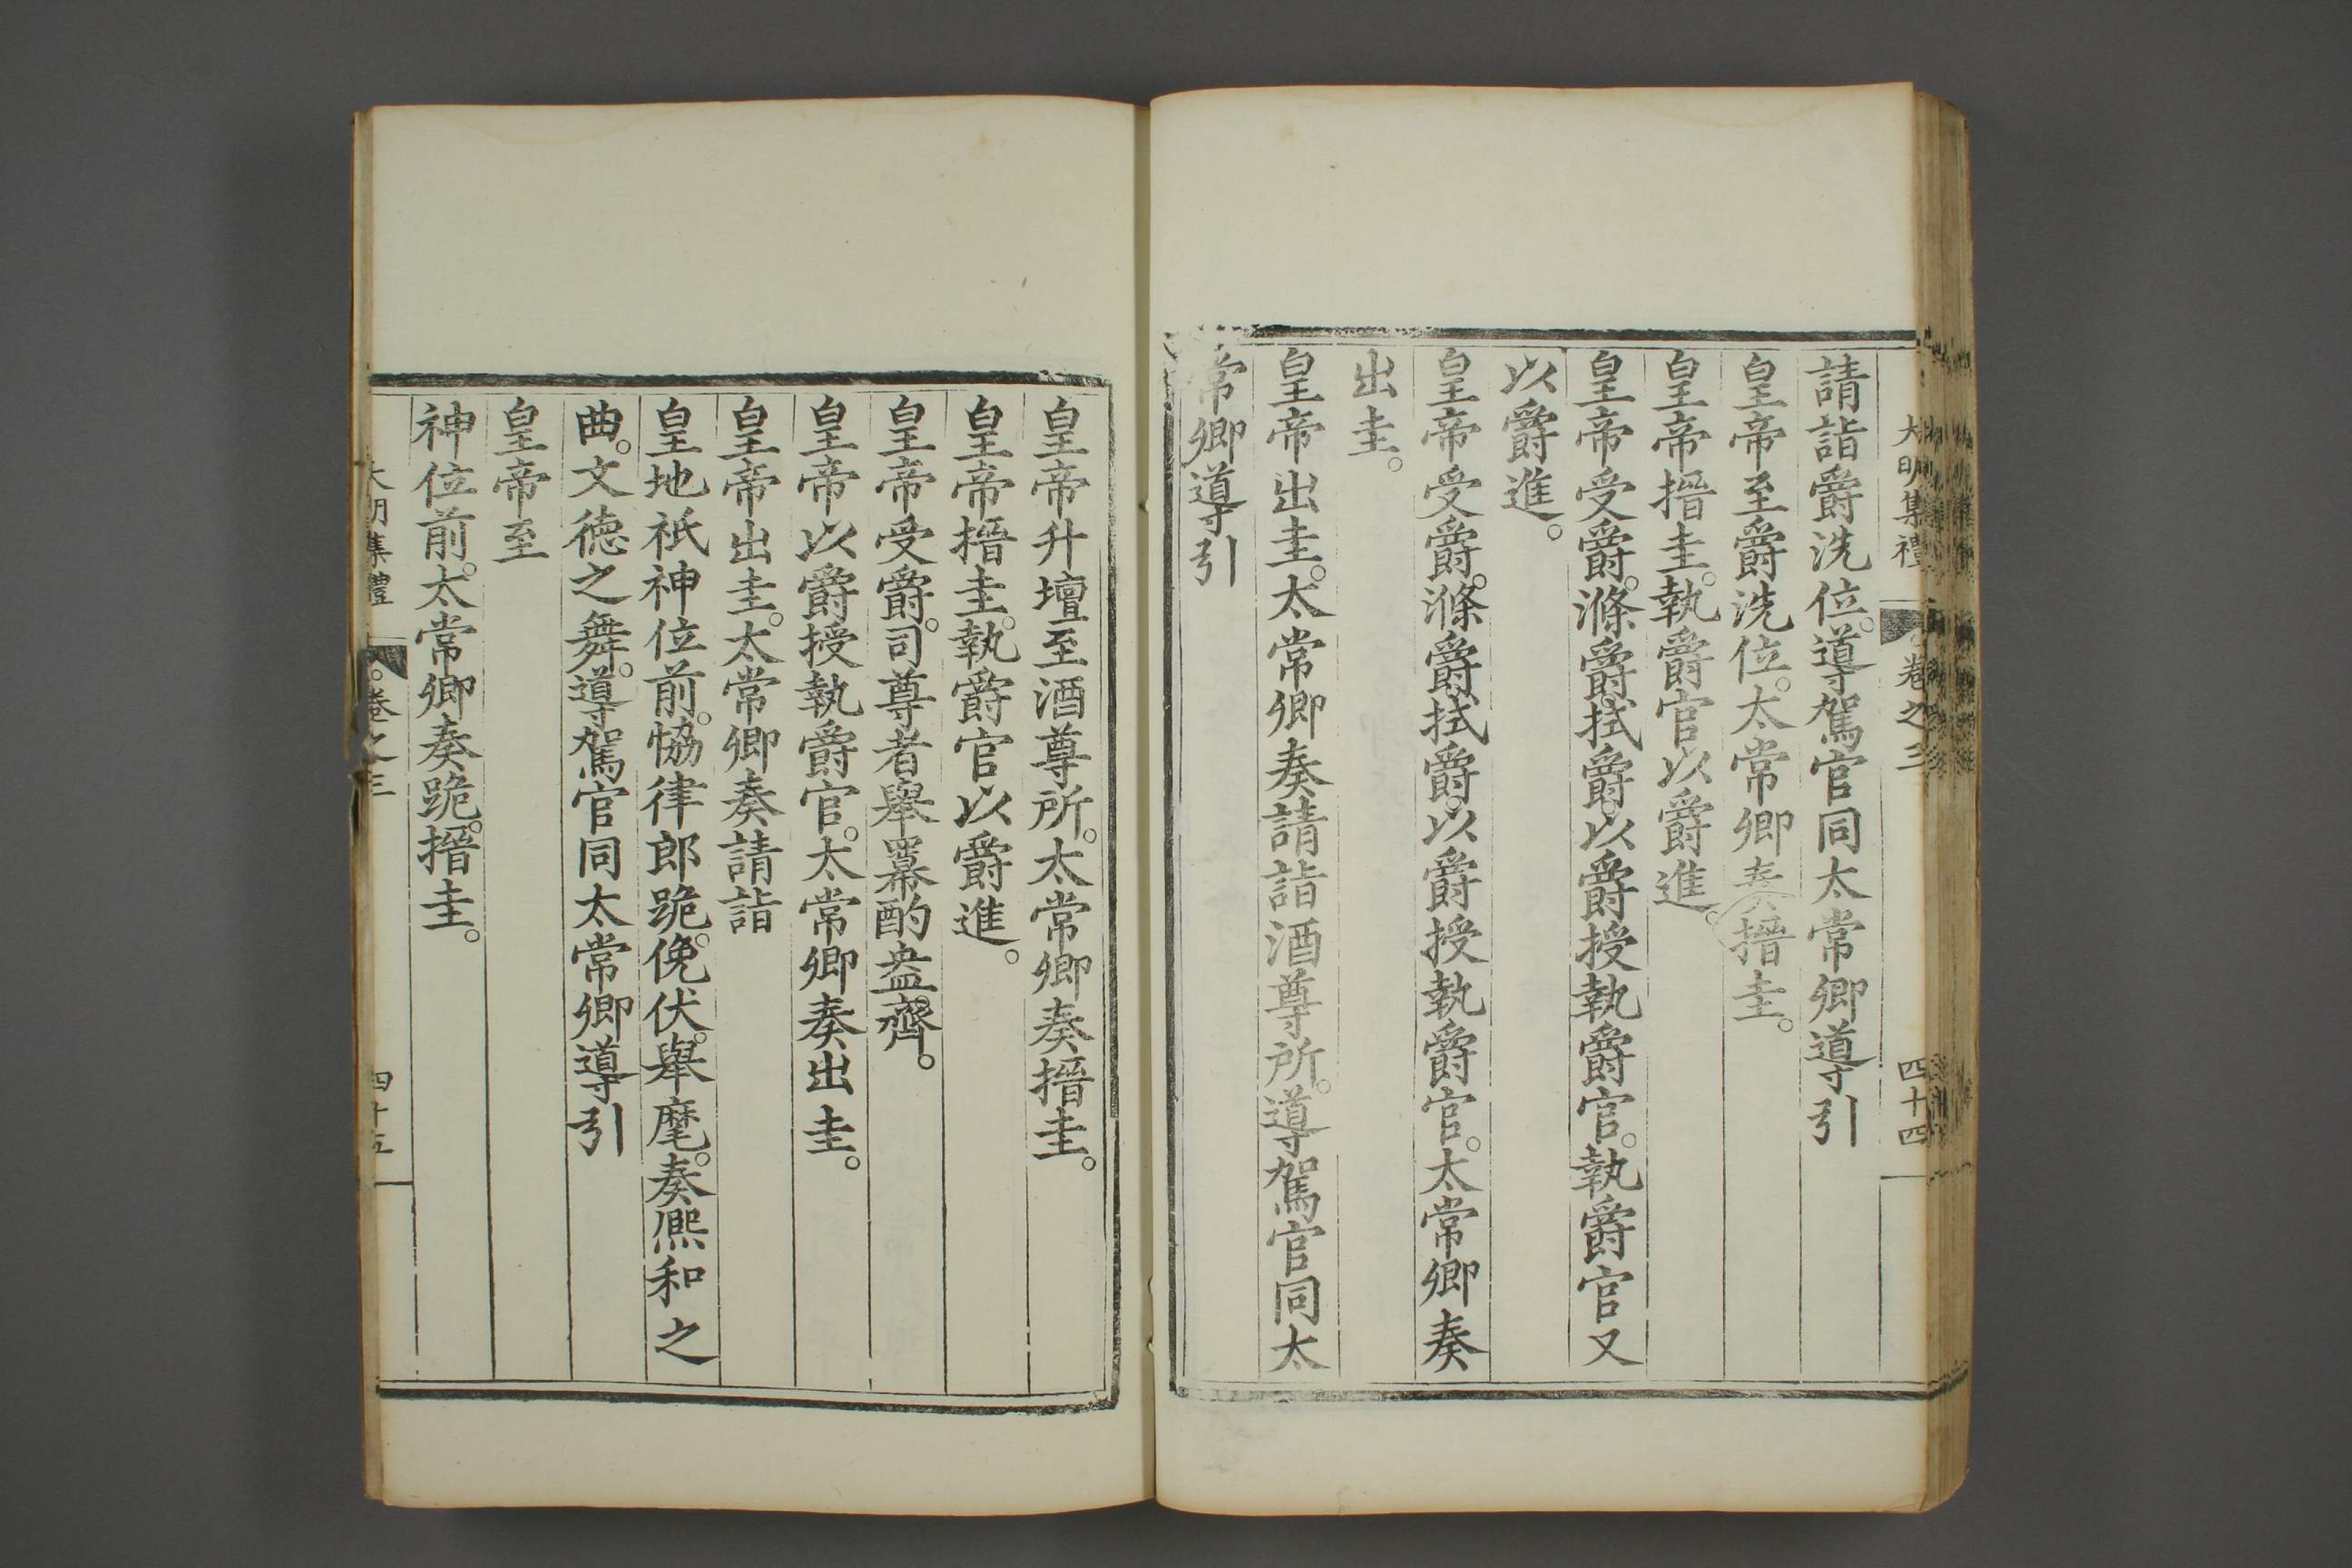 大明集禮 卷之三 四十四
請詣爵洗位。導駕官同太常卿導引
皇帝至爵洗位。太常卿奏搢圭。
皇帝搢圭。執爵官以爵進。
皇帝受爵。滌爵。拭爵。以爵授執爵官。執爵官又
以爵進。
皇帝受爵。滌爵拭爵。以爵授執爵官。太常卿奏
出圭。
皇帝出圭。太常卿奏請詣酒尊所。導駕官同太
常卿導引
皇帝升壇至酒尊所。太常卿奏搢圭。
皇帝搢圭。執爵官以爵進。
皇帝受爵。司尊者舉冪酌盎齊。
皇帝以爵授執爵官。太常卿奏出圭。
皇帝出圭。太常卿奏請詣
皇地祇神位前。恊律郎跪。俛伏。舉麾。奏熈和之
曲。文德之舞。導駕官同太常卿導引
皇帝至
神位前。太常卿奏跪。搢圭。
大明集禮 卷之三 四十五